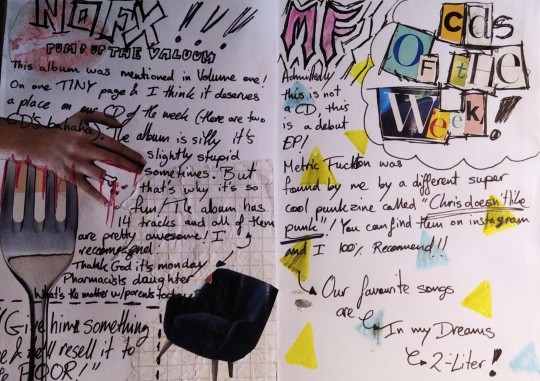 NOFX !!!
PUMP UP THE VALUUM
This album was mentioned in Volume one!
On one TINY page & I think it deserves
a place on our CD of the week (there are two
CD's hahaha). The album is silly it's
slightly stupid
sometimes. But
that's why it's so
fun! The album has
14 tracks and all of them
are pretty awesome! I
recommend
Thank God it's monday
Pharmacists daughter
What's the matter w/parents today
"Give him something
he'll resell it to
POOR!"
MF
Cds
OF the
Week!!
Admittedly
this is not
a CD, this
is a debut
EP!
Metric Fuckton was
found by me by a different super
cool punkzine called "Chris doesn't like
punk"! You can find them on instagram
and I 100% Recommend!!
Our favourite songs
are
In my Dreams
2-Liter!